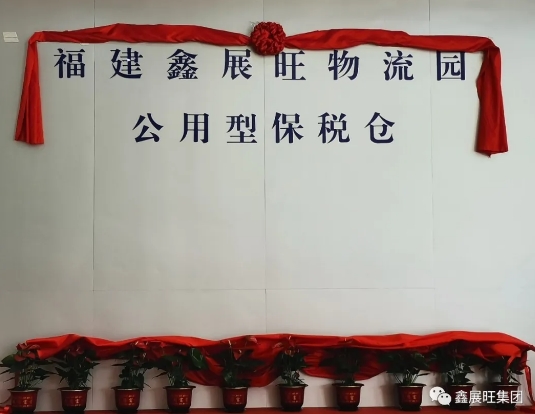 福建鑫展旺物流园
公用型保税仓
鑫展旺集团